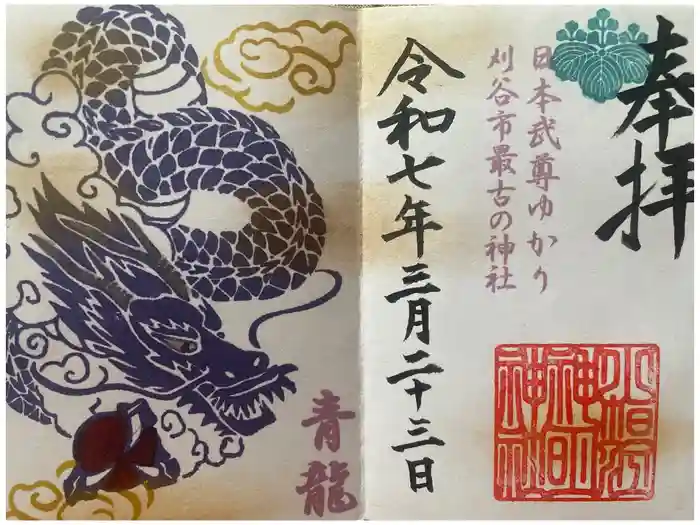 奉拝
日本武尊ゆかり
刈谷市最古の神社
令和七年三月二十三日
青龍